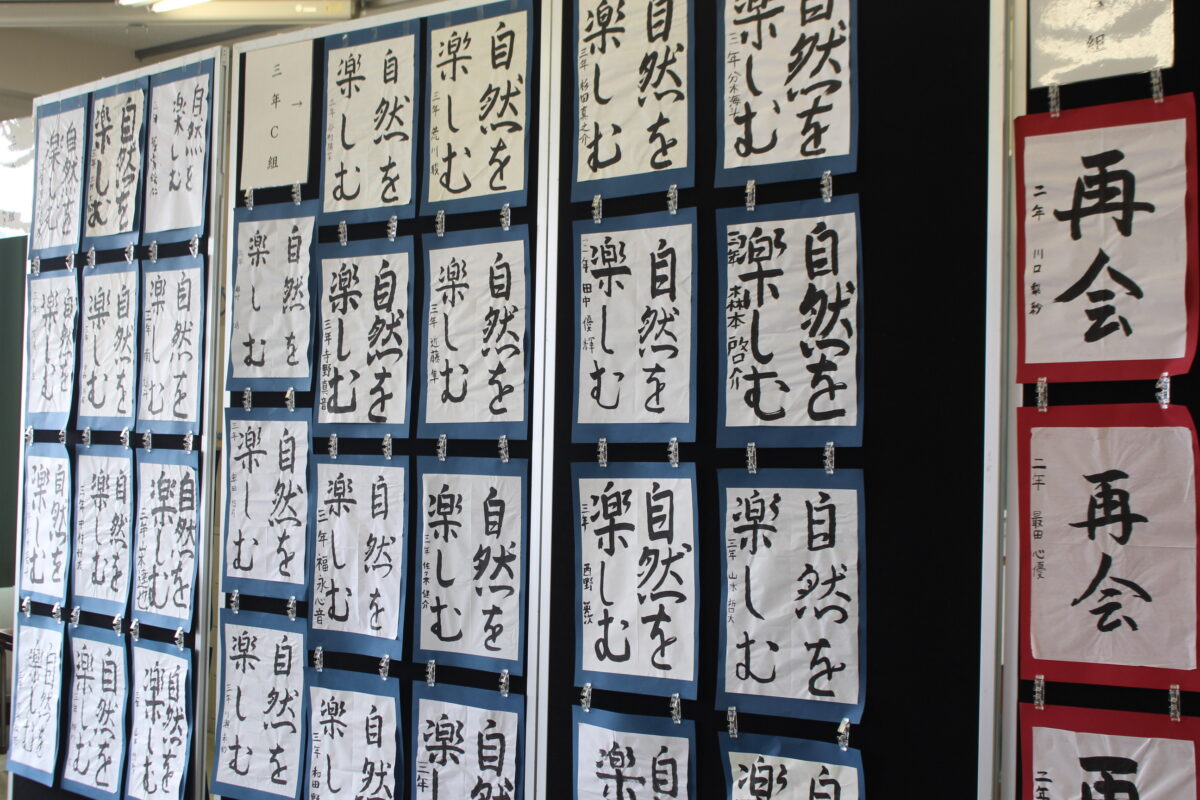 自然を
楽しむ
自然を
楽しむ
自然を
楽しむ
自然を
楽しむ
自然を
楽しむ
自然を
楽しむ
自然を
楽しむ
自然を
楽しむ
自然を
楽しむ
自然を
楽しむ
自然を
楽しむ
自然を
楽しむ
→
三年C組
自然を
楽しむ
三年
自然を
楽しむ
三年 荒川 駿
自然を
楽しむ
自然を
楽しむ
三年 寺野真音
自然を
楽しむ
三年 近藤 隼
自然を
楽しむ
三年
自然を
楽しむ
三年 福永心音
自然を
楽しむ
三年 佐々木健介
自然を
楽しむ
三年
自然
楽し
三年 和田
自然
楽し
三年
自然を
楽しむ
三年 杉田真之介
自然を
楽しむ
三年
自然を
楽しむ
三年 田中 優輝
自然を
楽しむ
三年 森本 啓介
自然を
楽しむ
三年 西野
自然を
楽しむ
三年 山本
自
楽
自
楽
組
再会
二年 川口
再会
二年 最田 心優
再
二年